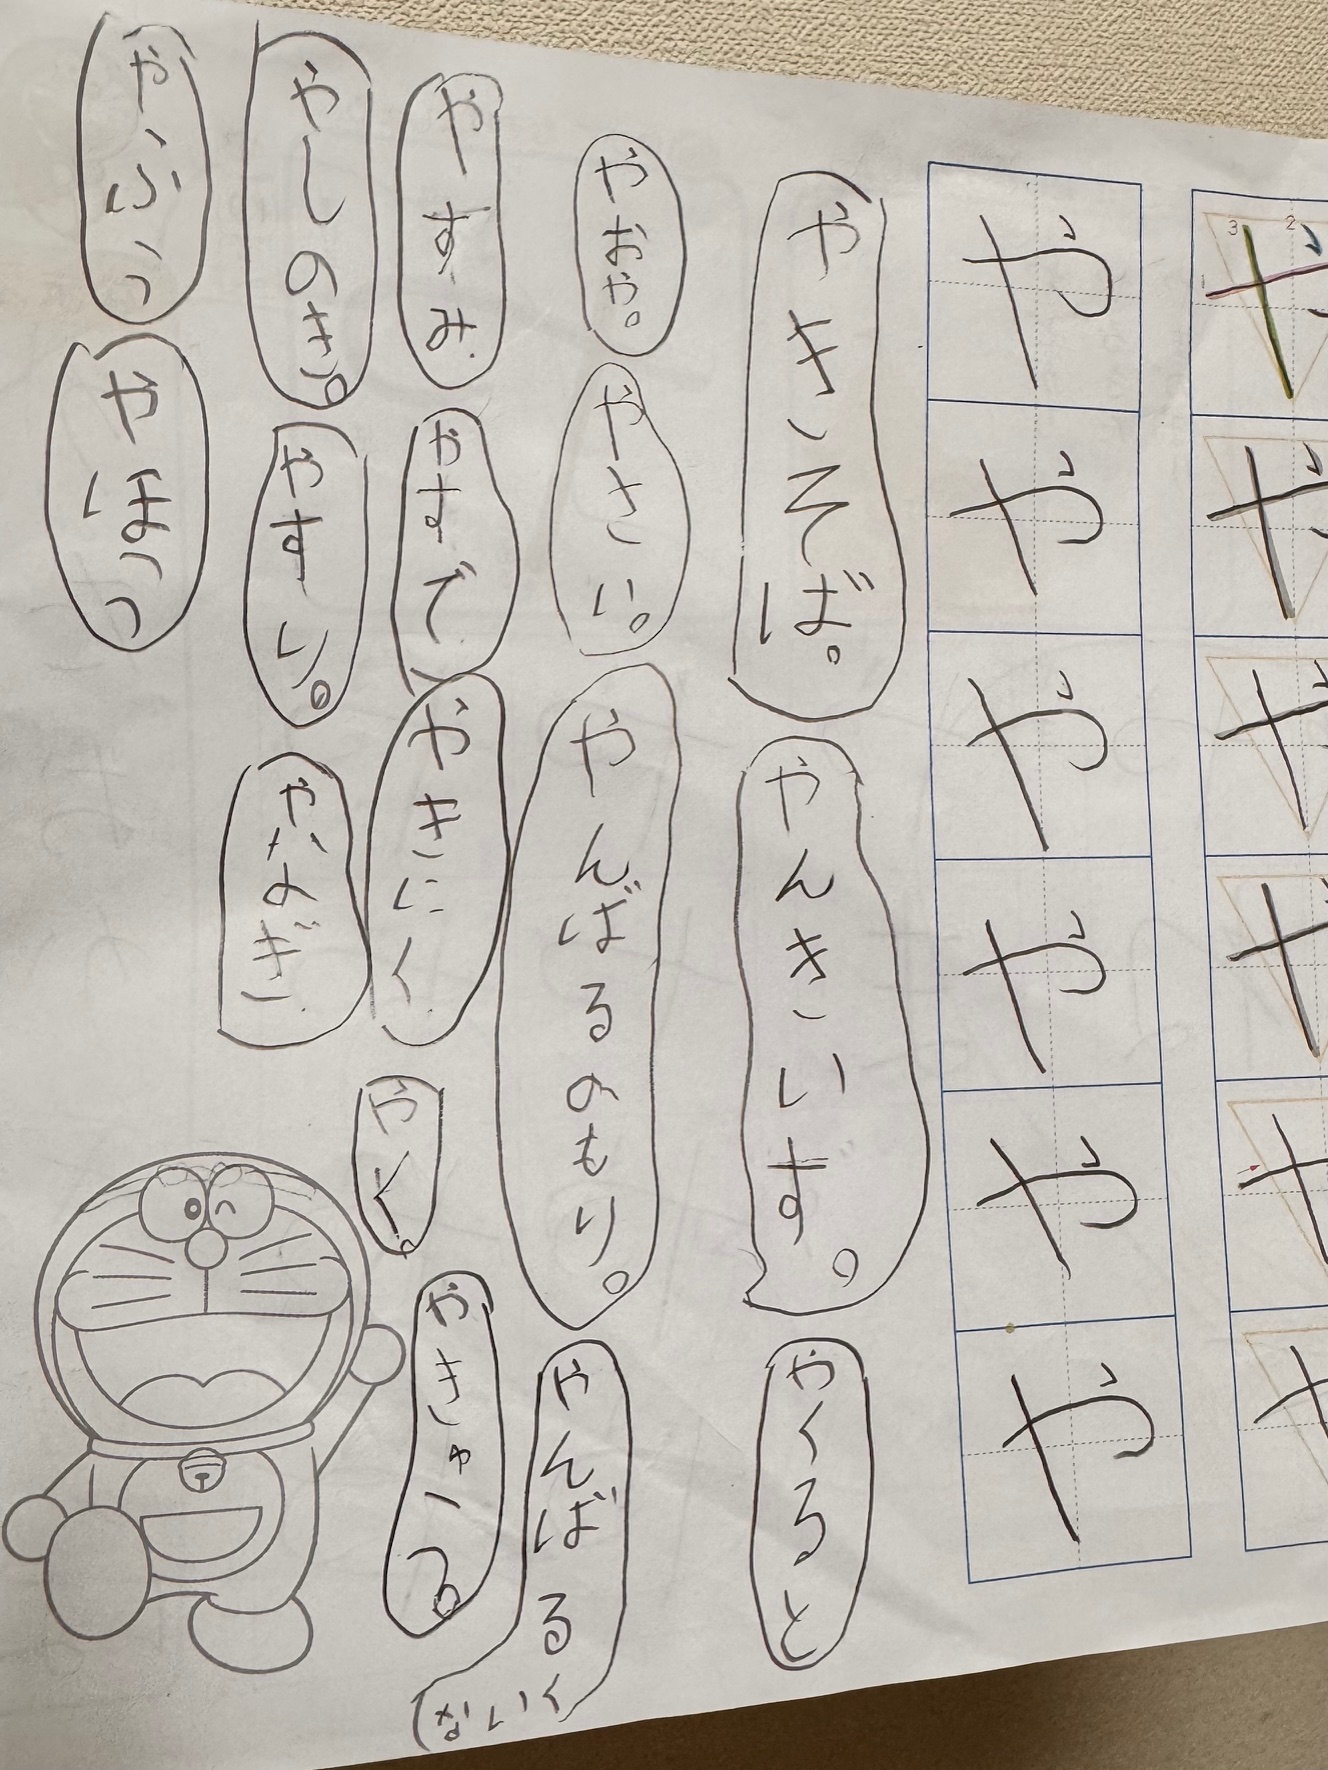 3 2 1
や
や
や
や
や
や
や
や
や
や
や
や
やきそば。
やんきいす。
やくると
やおや。
やさい。
やんばるのもり。
やんばるくいな
やすみ
やすで
やきにく
やく。
やきゅう。
やしのき。
やすい。
やなぎ
やふう
やほう